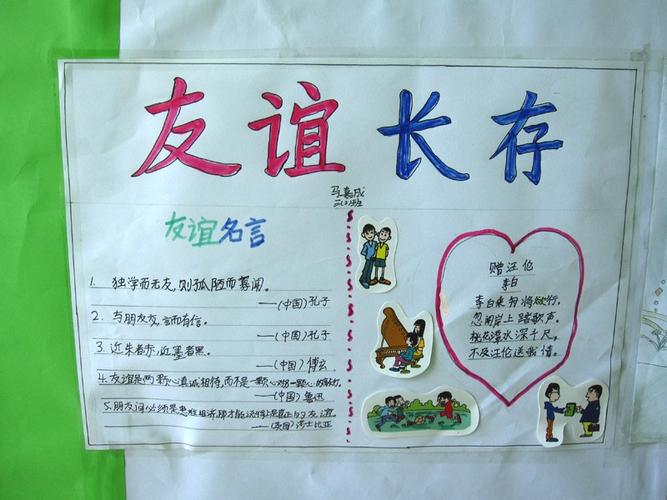 友谊长存
马嘉成
三(2)班
友谊名言
1. 独学而无友,则孤陋而寡闻。
——(中国)孔子
2. 与朋友交,言而有信。
——(中国)孔子
3. 近朱者赤,近墨者黑。
——(中国)傅玄
4. 友谊是两颗心真诚相待,而不是一颗心对另一颗心的敲打。
——(中国)鲁迅
5. 朋友间必须是患难相济,那才能说得上真正的友谊
——(英国)莎士比亚
赠汪伦
李白
李白乘舟将欲行,
忽闻岸上踏歌声。
桃花潭水深千尺,
不及汪伦送我情。